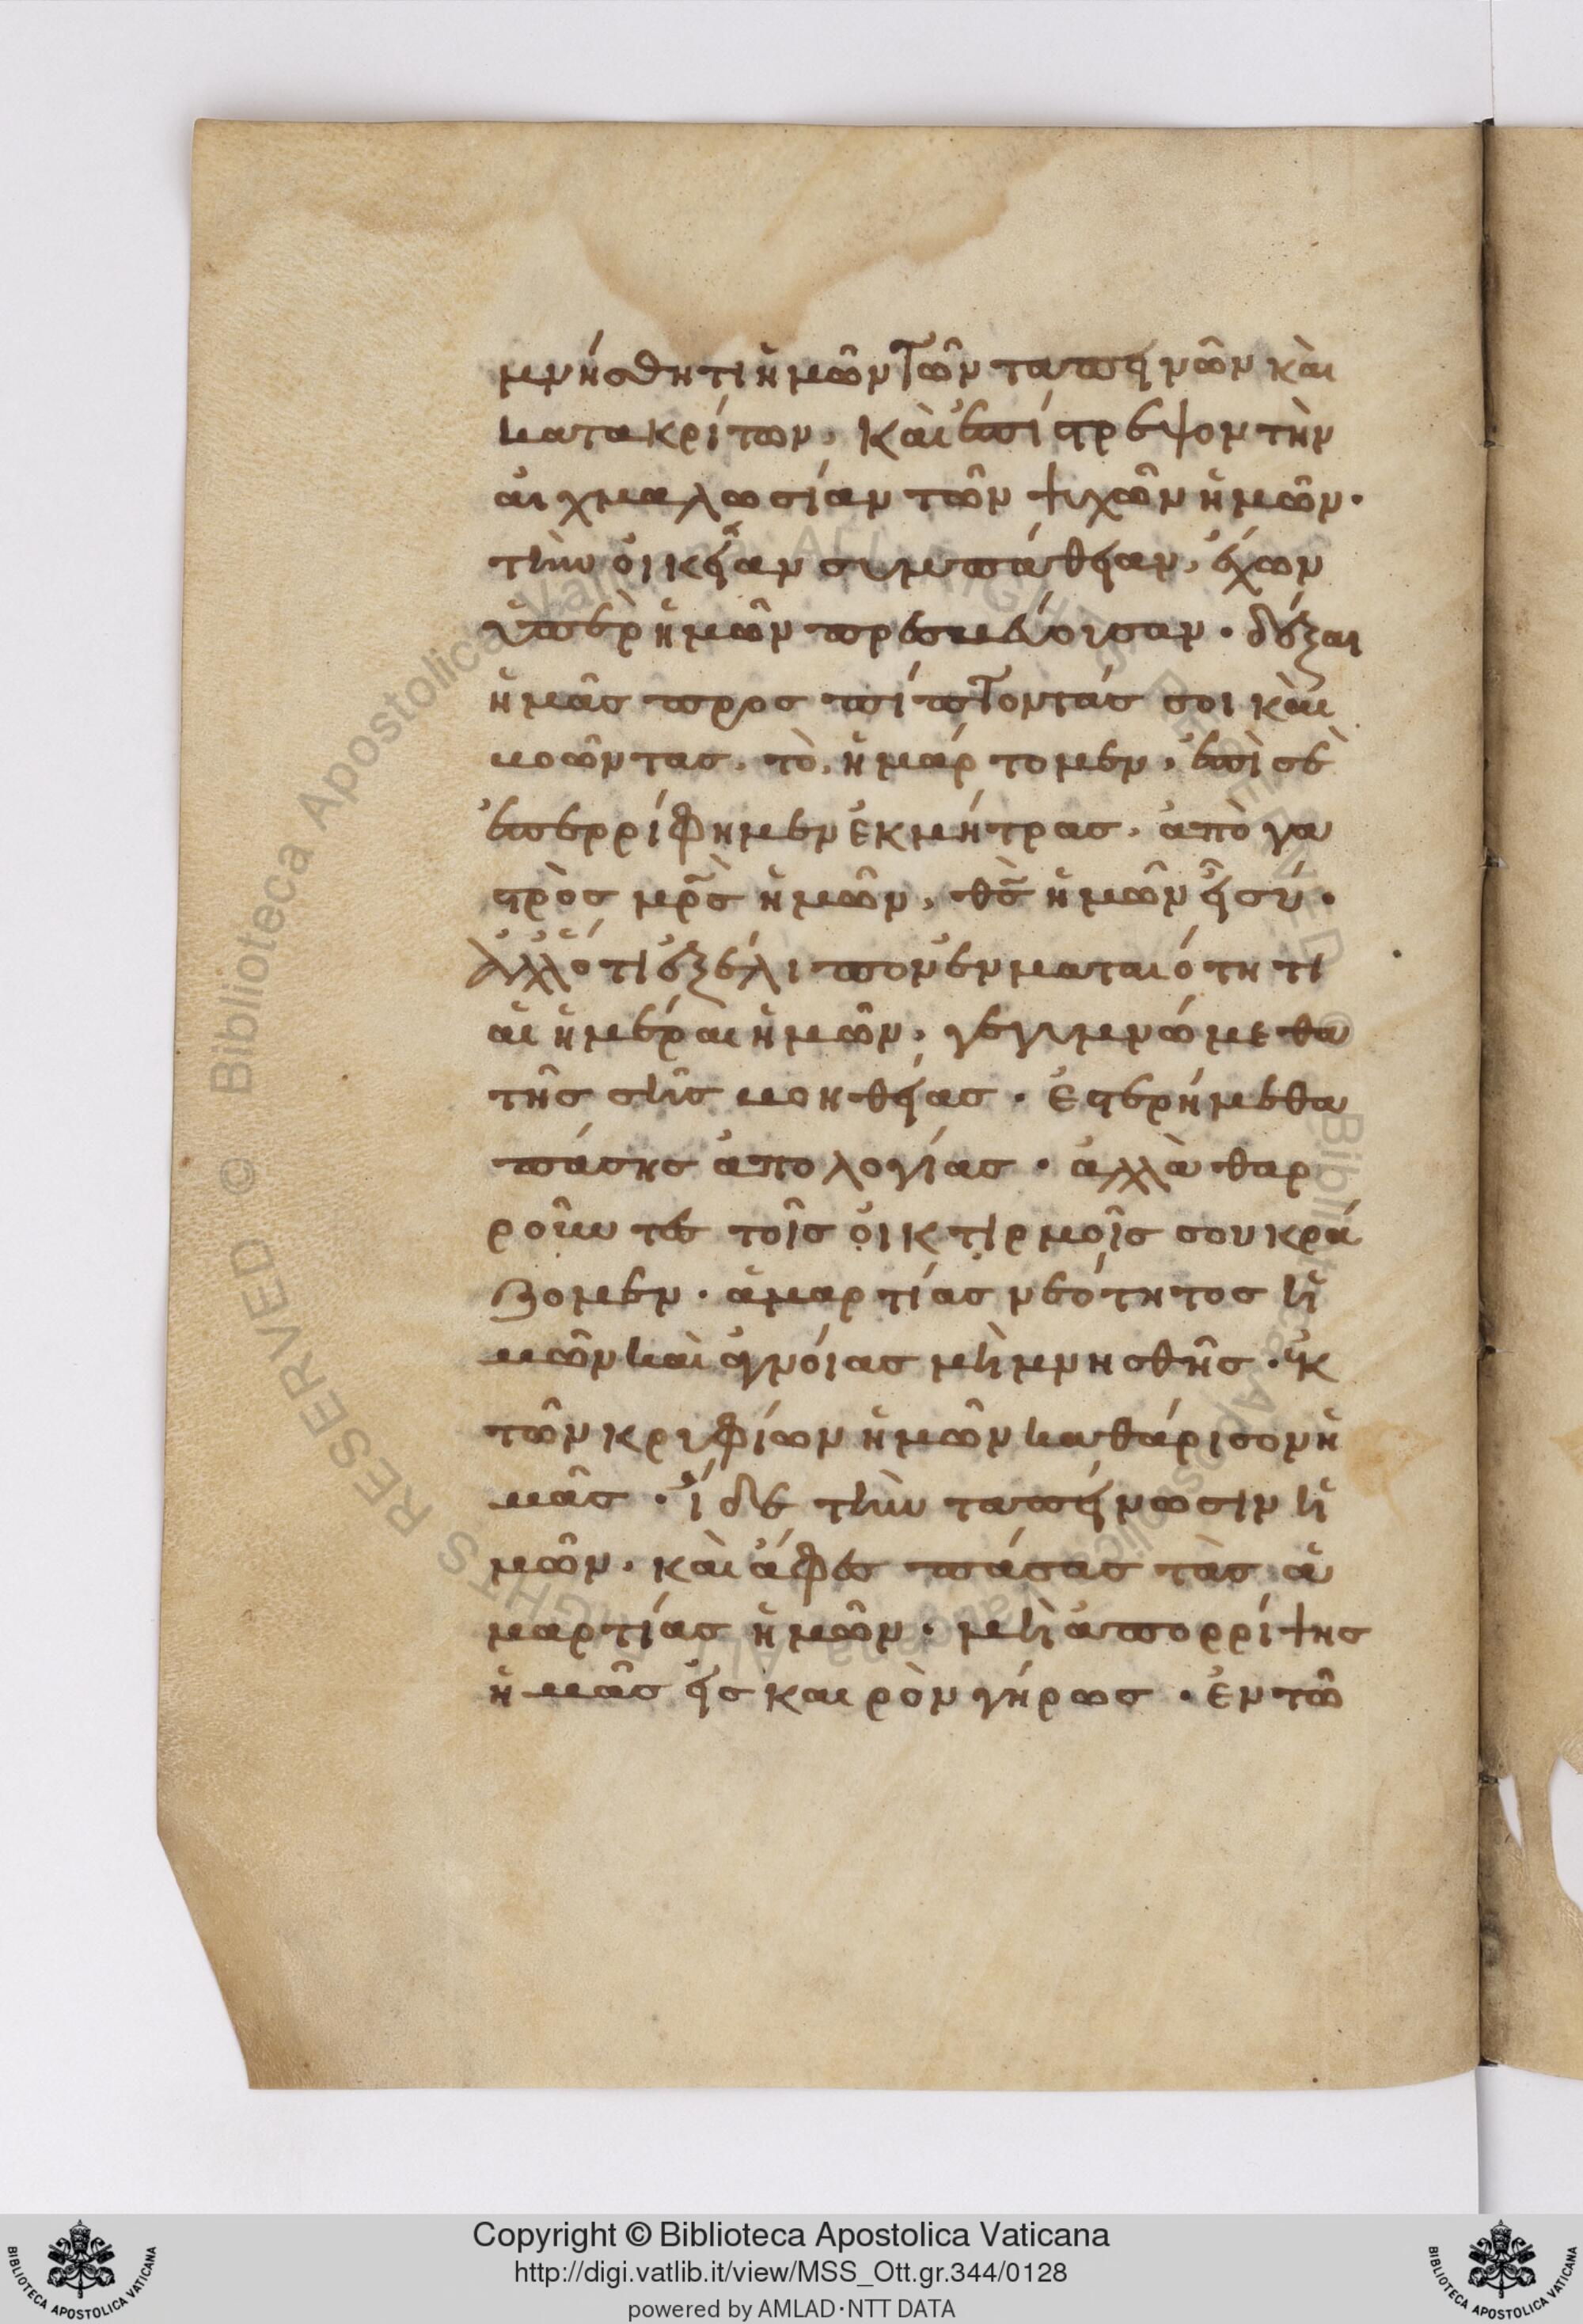 μνήσθητι ἡμῶν τῶν ταπεινῶν καὶ
κατακρίτων, καὶ ἐπίστρεψον τὴν
αἰχμαλωσίαν τῶν ψυχῶν ἡμῶν·
τὴν οἰκείαν συμπάθειαν, ἔχων
ὑπὲρ ἡμῶν πρεσβεύουσαν · δέξαι
ἡμᾶς προσπίπτοντάς σοι καὶ
βοῶντας, τὸ, ἡμάρτομεν, ἐπὶ σὲ
ἐπερρίφημεν ἐκ μήτρας, ἀπὸ γα
στρὸς μρ̅ς ἡμῶν, θς̅ ἡμῶν εἶ σύ·
Ἀλλ' ὅτι ἐξέλιπον ἐν ματαιότητι
αἱ ἡμέραι ἡμῶν, γεγυμνώμεθα
τῆς σῆς βοηθείας · ἐστερήμεθα
πάσης ἀπολογίας · ἀλλὰ θαρ
ροῦντες τοῖς οἰκτιρμοῖς σου κρά
ζομεν · ἁμαρτίας νεότητος ἡ
μῶν καὶ ἀγνοίας μὴ μνησθῇς · ἐκ
τῶν κρυφίων ἡμῶν καθάρισον ἡ
μᾶς · ἴδε τὴν ταπείνωσιν ἡ
μῶν, καὶ ἄφες πάσας τὰς ἁ
μαρτίας ἡμῶν · μὴ ἀπορρίψης
ἡμᾶς εἰς καιρὸν γήρως · ἐν τῶ
© Biblioteca Apostolica Vaticana ALL RIGHTS RESERVED
Copyright © Biblioteca Apostolica Vaticana
http://digi.vatlib.it/view/MSS_Ott.gr.344/0128
powered by AMLAD·NTT DATA
BIBLIOTECA APOSTOLICA VATICANA
BIBLIOTECA APOSTOLICA VATICANA